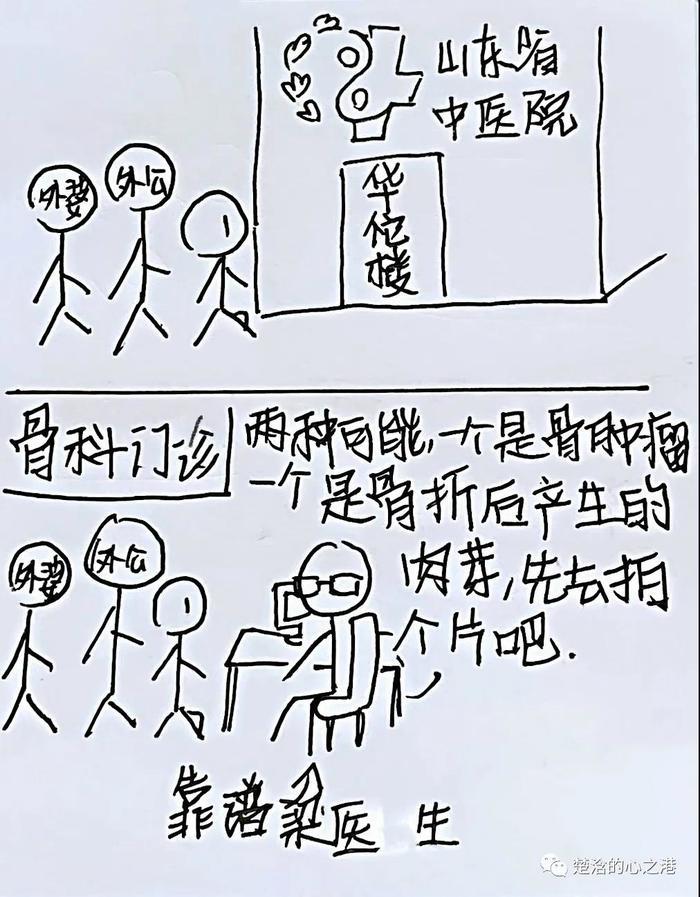 山东省
中医院
华佗楼
外婆
外公
骨科门诊
两种可能,一个是骨肿瘤
一个是骨折后产生的
肉芽,先去拍
个片吧.
外婆
外公
靠谱梁医生
楚浛的心之港